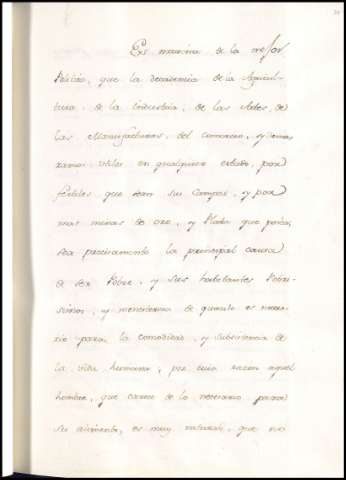 Es maxima de la mejor
Politica, que la decadencia de la Agricul-
tura, de la Industria, de las Artes, de
las Manufacturas, del comercio, y demas
ramos utiles en qualquiera estado, por
fertiles que sean sus Campos, y por
mas minas de oro, y Plata que posea,
sea precisamente la principal causa
de ser Pobre, y sus habitantes Pobri-
simos, y menesterosos de quanto es necesa-
rio para la comodidad, y subsistencia de
la vida humana; por cuia razon aquel
hombre, que carece de lo necesario para
su alimento, es muy natural, que no